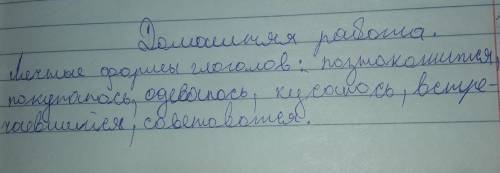 Домашняя работа.
Личные формы глоголов: познакомится,
покупалось, одевалось, кусалось, встре-
чаевшийся, советоваться.